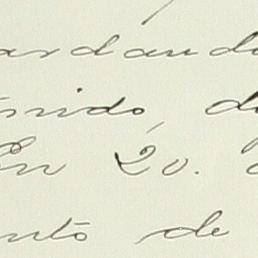 ardand
nido, d
En 20.
nto de